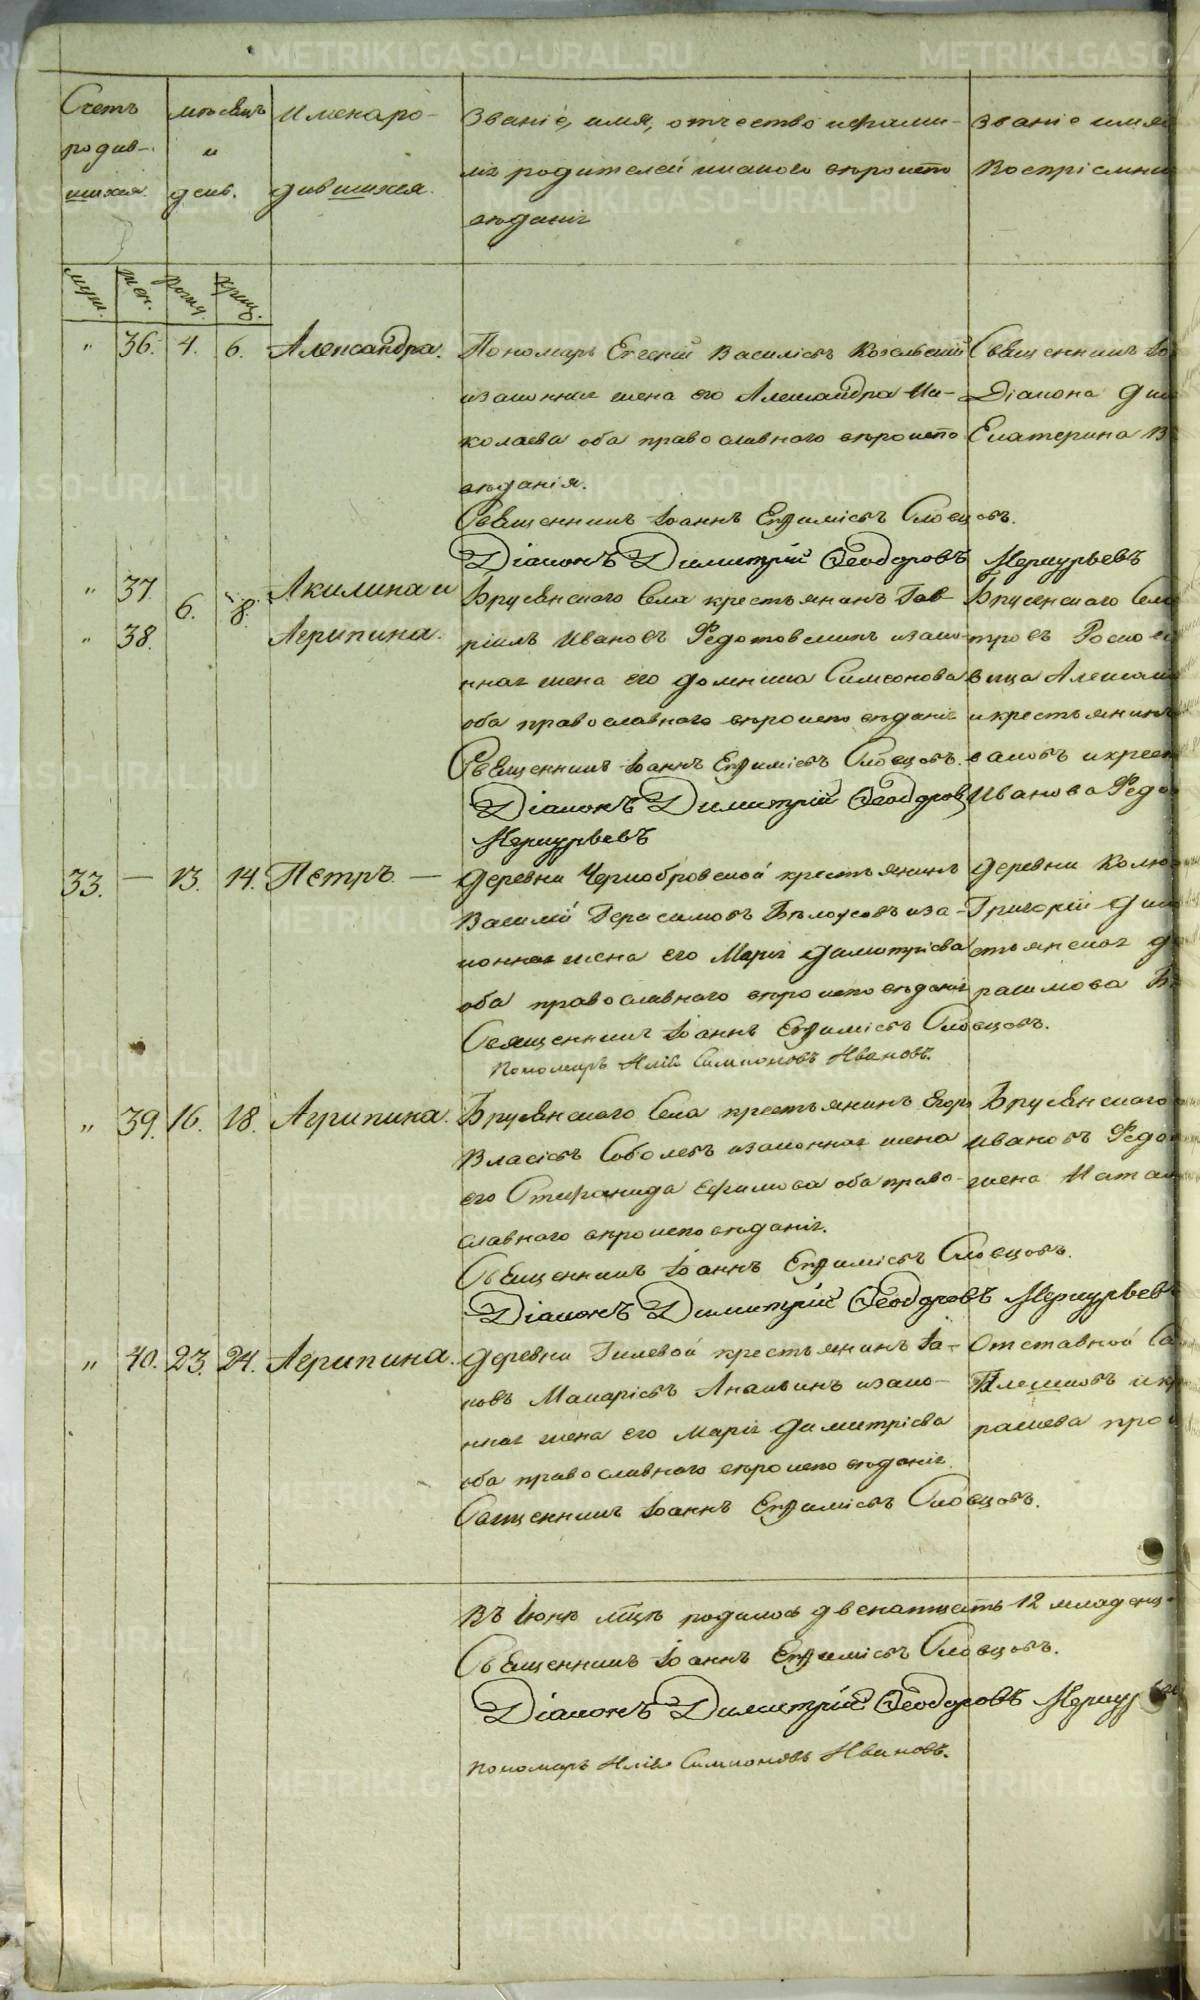 Счетъ
родив-
шихся.
мѣсяцъ
и
день.
Имена ро-
дившихся.
Званіе, имя, отчество и фами-
лія родителей и какого вѣроиспо-
вѣданія
Званіе имя
Воспріемни
муж.
жен.
рожд.
крещ.
" 36. 4. 6. Александра.
Пономарь Евгеній Василіевъ Козельскій
изаконная жена его Александра Ни-
колаева оба православнаго вѣроиспо
вѣданія.
Священникъ Іо
Діакона Дим
Екатерина В
Священникъ Іоаннъ Евфиміевъ Словцовъ.
Діаконъ Димитрій Ѳеодоровъ Меркурьевъ
" 37. 6. 8. Акилина и
" 38. Агрипина.
Брусянского Села крестьянинъ Гав-
ріилъ Ивановъ Федотовскихъ изако-
нная жена его Домника Симеонова
оба православнаго вѣроиспо вѣданія
Священникъ Іоаннъ Евфиміевъ Словцовъ.
Діаконъ Димитрій Ѳеодоровъ
Меркурьевъ
Брусянского Села
тровъ
вица Александ
и крестьянинъ
и крест
Иванова Федо
33. — 13. 14. Петръ. —
Деревни Чернобровской крестьянинъ
Василій Герасимовъ Бѣлоусовъ иза-
конная жена его Марія Димитріева
оба православнаго вѣроиспо вѣданія
Священникъ Іоаннъ Евфиміевъ Словцовъ.
Пономарь Илія Симионовъ Ивановъ.
Деревни Колю
Григорій Дим
стьянская д
расимова Б
" 39. 16. 18. Агрипина.
Брусянского Села крестьянинъ Егоръ
Власіевъ Соболевъ изаконная жена
его Стефанида Ефимова оба право-
славнаго вѣроиспо вѣданія.
Священникъ Іоаннъ Евфиміевъ Словцовъ.
Діаконъ Димитрій Ѳеодоровъ Меркурьевъ
Брусянского
Ивановъ Федо
жена Натал
" 40. 23. 24. Агрипина.
Деревни Гилевой крестьянинъ Іа-
ковъ Макаріевъ Ананьинъ изако-
нная жена его Марія Димитріева
оба православнаго вѣроиспо вѣданія.
Священникъ Іоаннъ Евфиміевъ Словцовъ.
Отставной Са
Плешковъ и кр
рашева
Въ Іюнѣ мцѣ родилось двенатцать 12 младенц-
Священникъ Іоаннъ Евфиміевъ Словцовъ.
Діаконъ Димитрій Ѳеодоровъ Меркур
Пономарь Илія Симионовъ Ивановъ.
METRIKI.GASO-URAL.RU